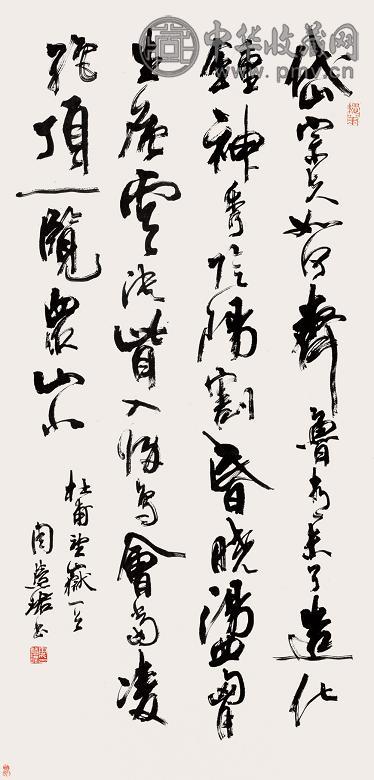 中华收藏网
岱宗夫如何齊魯青未了造化
鍾神秀陰陽割昏曉盪胷
生層雲決眥入歸鳥會當凌
絕頂一覽眾山小
杜甫望嶽一首
周慧珺書